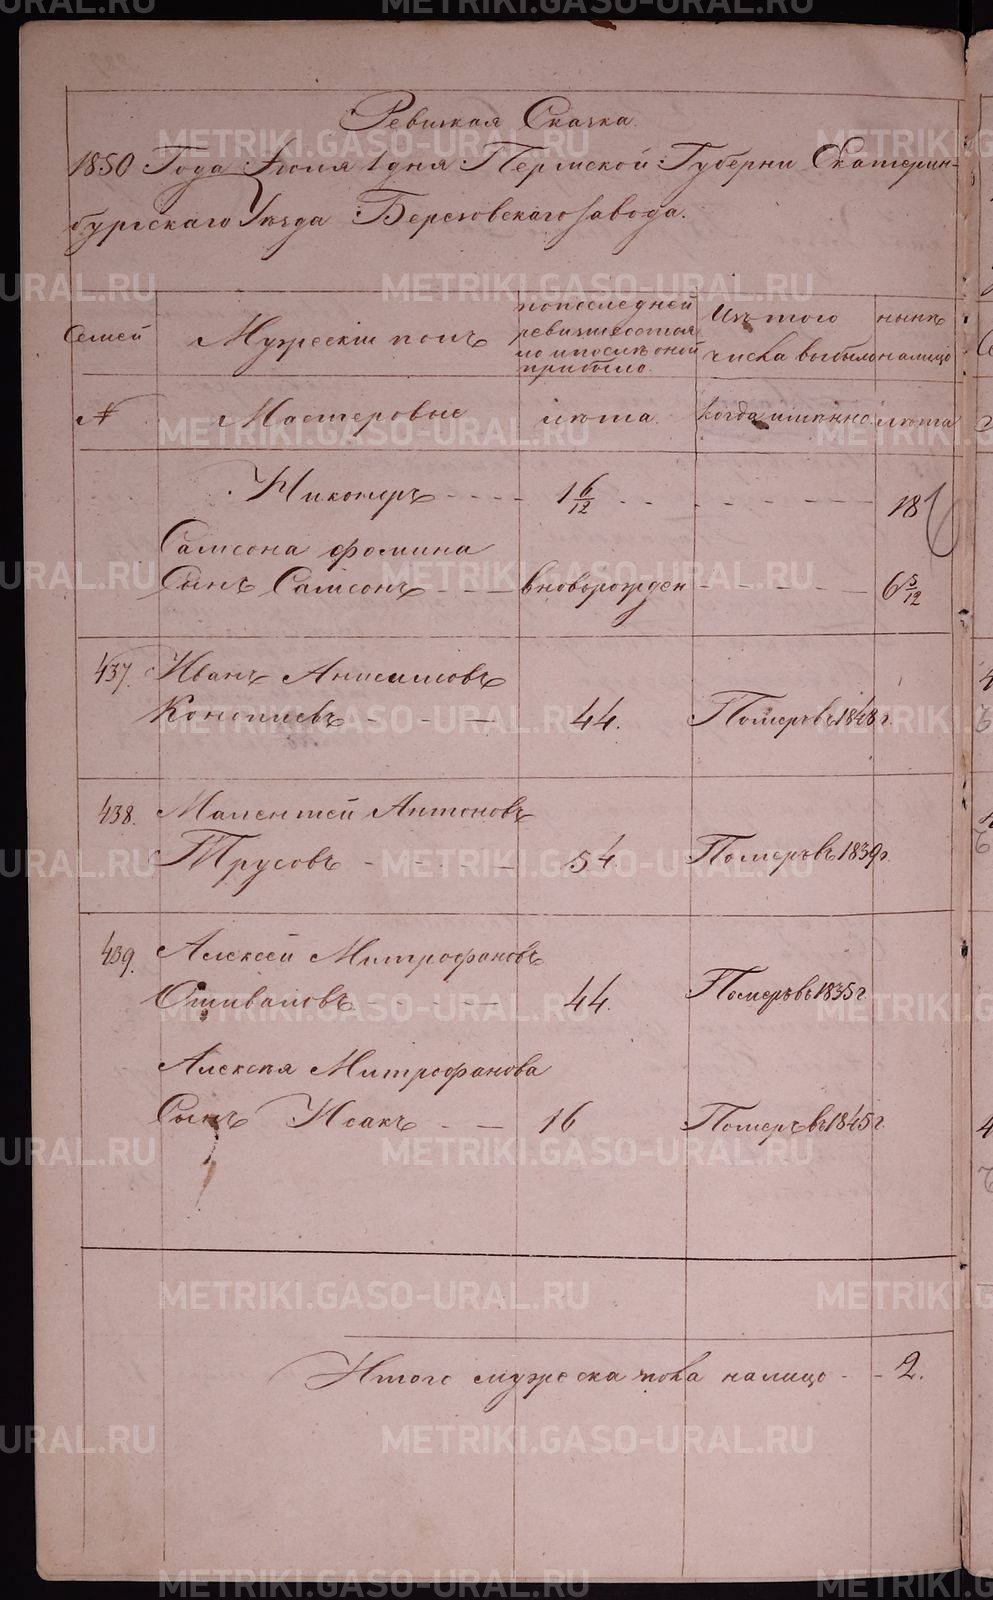 Ревизкая Сказка.
1850 Года Июля 1 дня Пермской Губерни Екатерин-
бургскаго Уезда Березовскаго завода.
Семей
Мужескій полъ
попоследней
ревизіисостоя
ло ипослѣ оной
прибыло.
Изъ того
числа выбыло
нынѣ
налицо
№
Мастеровые
лѣта.
когда имянно.
лѣта
Никоноръ - - - - 1 6/12 - - - - - - - 18
Самсона фомина
Сынъ Самсонъ - - - вновьрожден - - - - - 6 5/12
437. Иванъ Анисимовъ
Конопаевъ - - - 44. Померъвъ1848г.
438. Малентей Антоновъ
Трусовъ - - - - - 54. Померъвъ1839г.
439. Алексей Митрофановъ
Ошиваловъ - - - - 44. Померъвъ1835г
Алексѣя Митрофанова
Сынъ Исакъ - - 16 Померъвъ1845г
Итого мужеска пола налицо - - 2.
METRIKI.GASO-URAL.RU